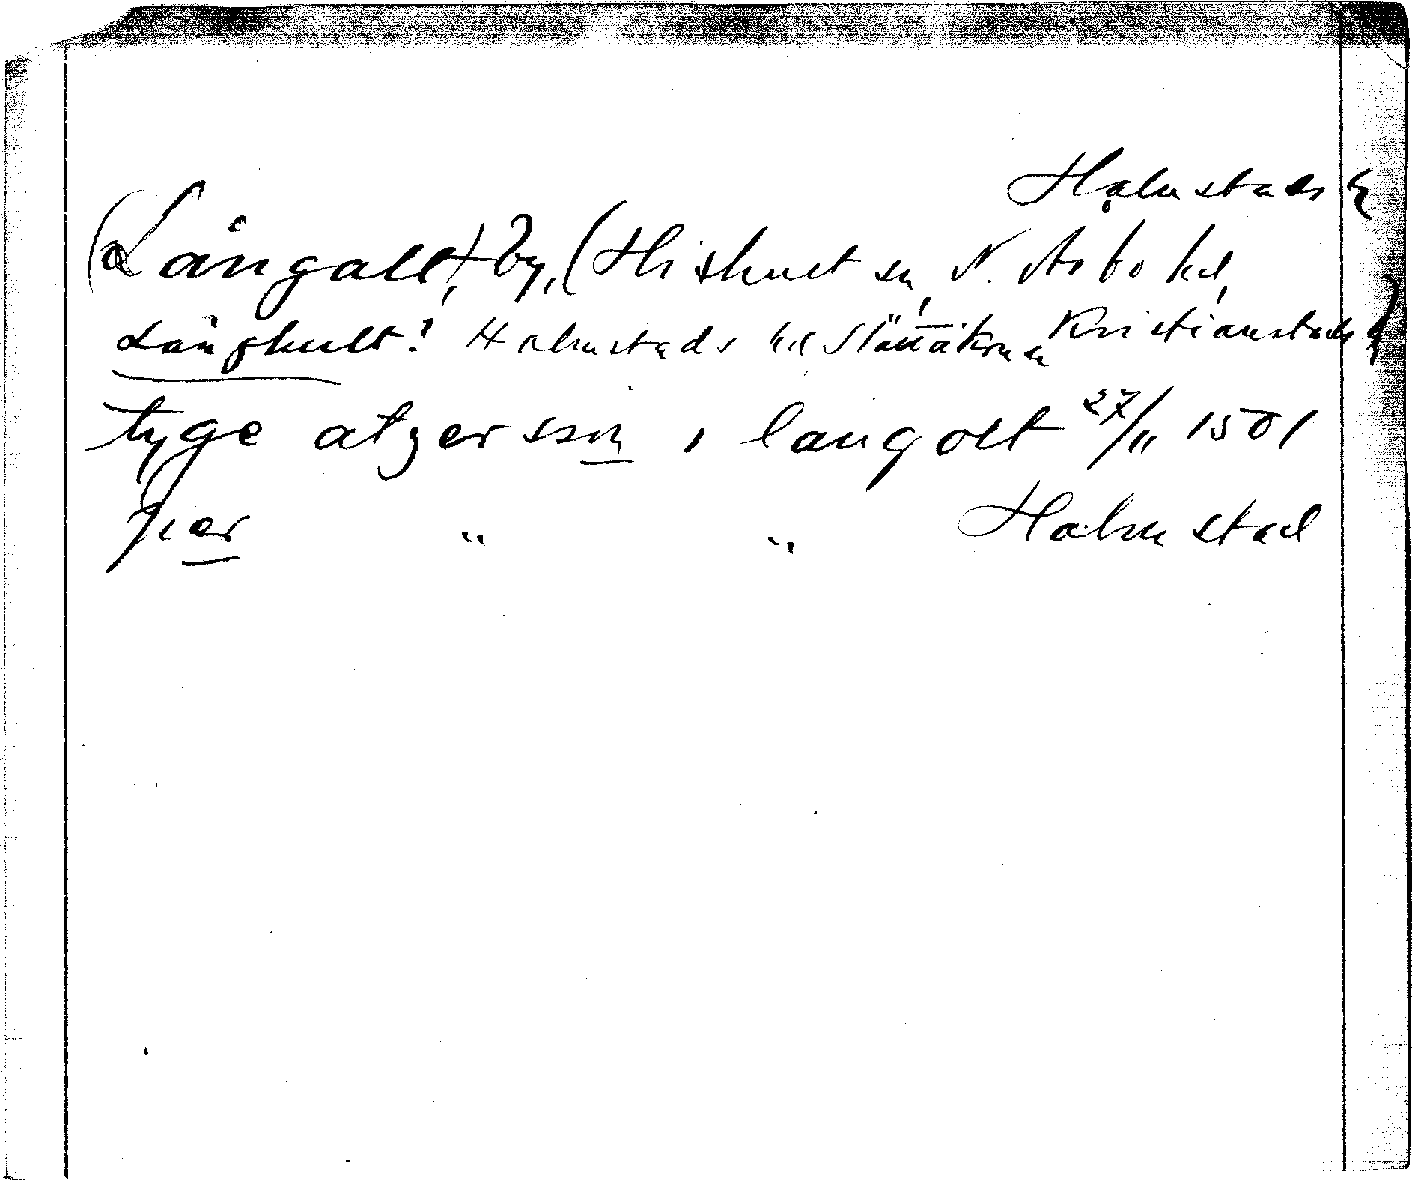 Halmstads h
(Långalt,) by, (Hishult sn, N. Åsbo hd,
Långhult? Halmstads hd Slättåkra sn Kristianstads l)
tyge atzersson i langolt 27/11 1501
per " " Halmstad